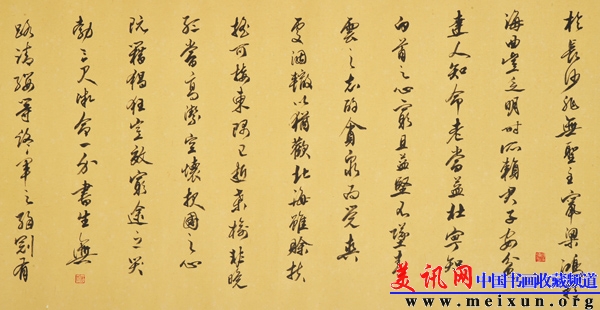 於長沙非無聖主竄梁鴻於
海曲豈乏明時所賴君子安貧
達人知命老當益壯寧知
白首之心窮且益堅不墜青
雲之志酌貪泉而覺爽
處涸轍以猶歡北海雖賒扶
搖可接東隅已逝桑榆非晚
孟嘗高潔空懷報國之心
阮籍猖狂豈效窮途之哭
勃三尺微命一介書生無
路請纓等終軍之弱冠有
美讯网 中国书画收藏频道
www.meixun.org